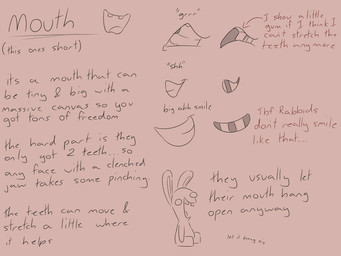 Mouth
(this ones short)
its a mouth that can
be tiny & big with a
massive canvas so you
got tons of freedom
the hard part is they
only got 2 teeth... so
any face with a clenched
jaw takes some pinching.
the teeth can move &
stretch a little where
it helps
"grrr"
I show a little
gum if I think I
can't stretch the
teeth anymore
"shh"
big ahh smile
Tbf Rabbids
don't really smile
like that...
they usually let
their mouth hang
open anyway